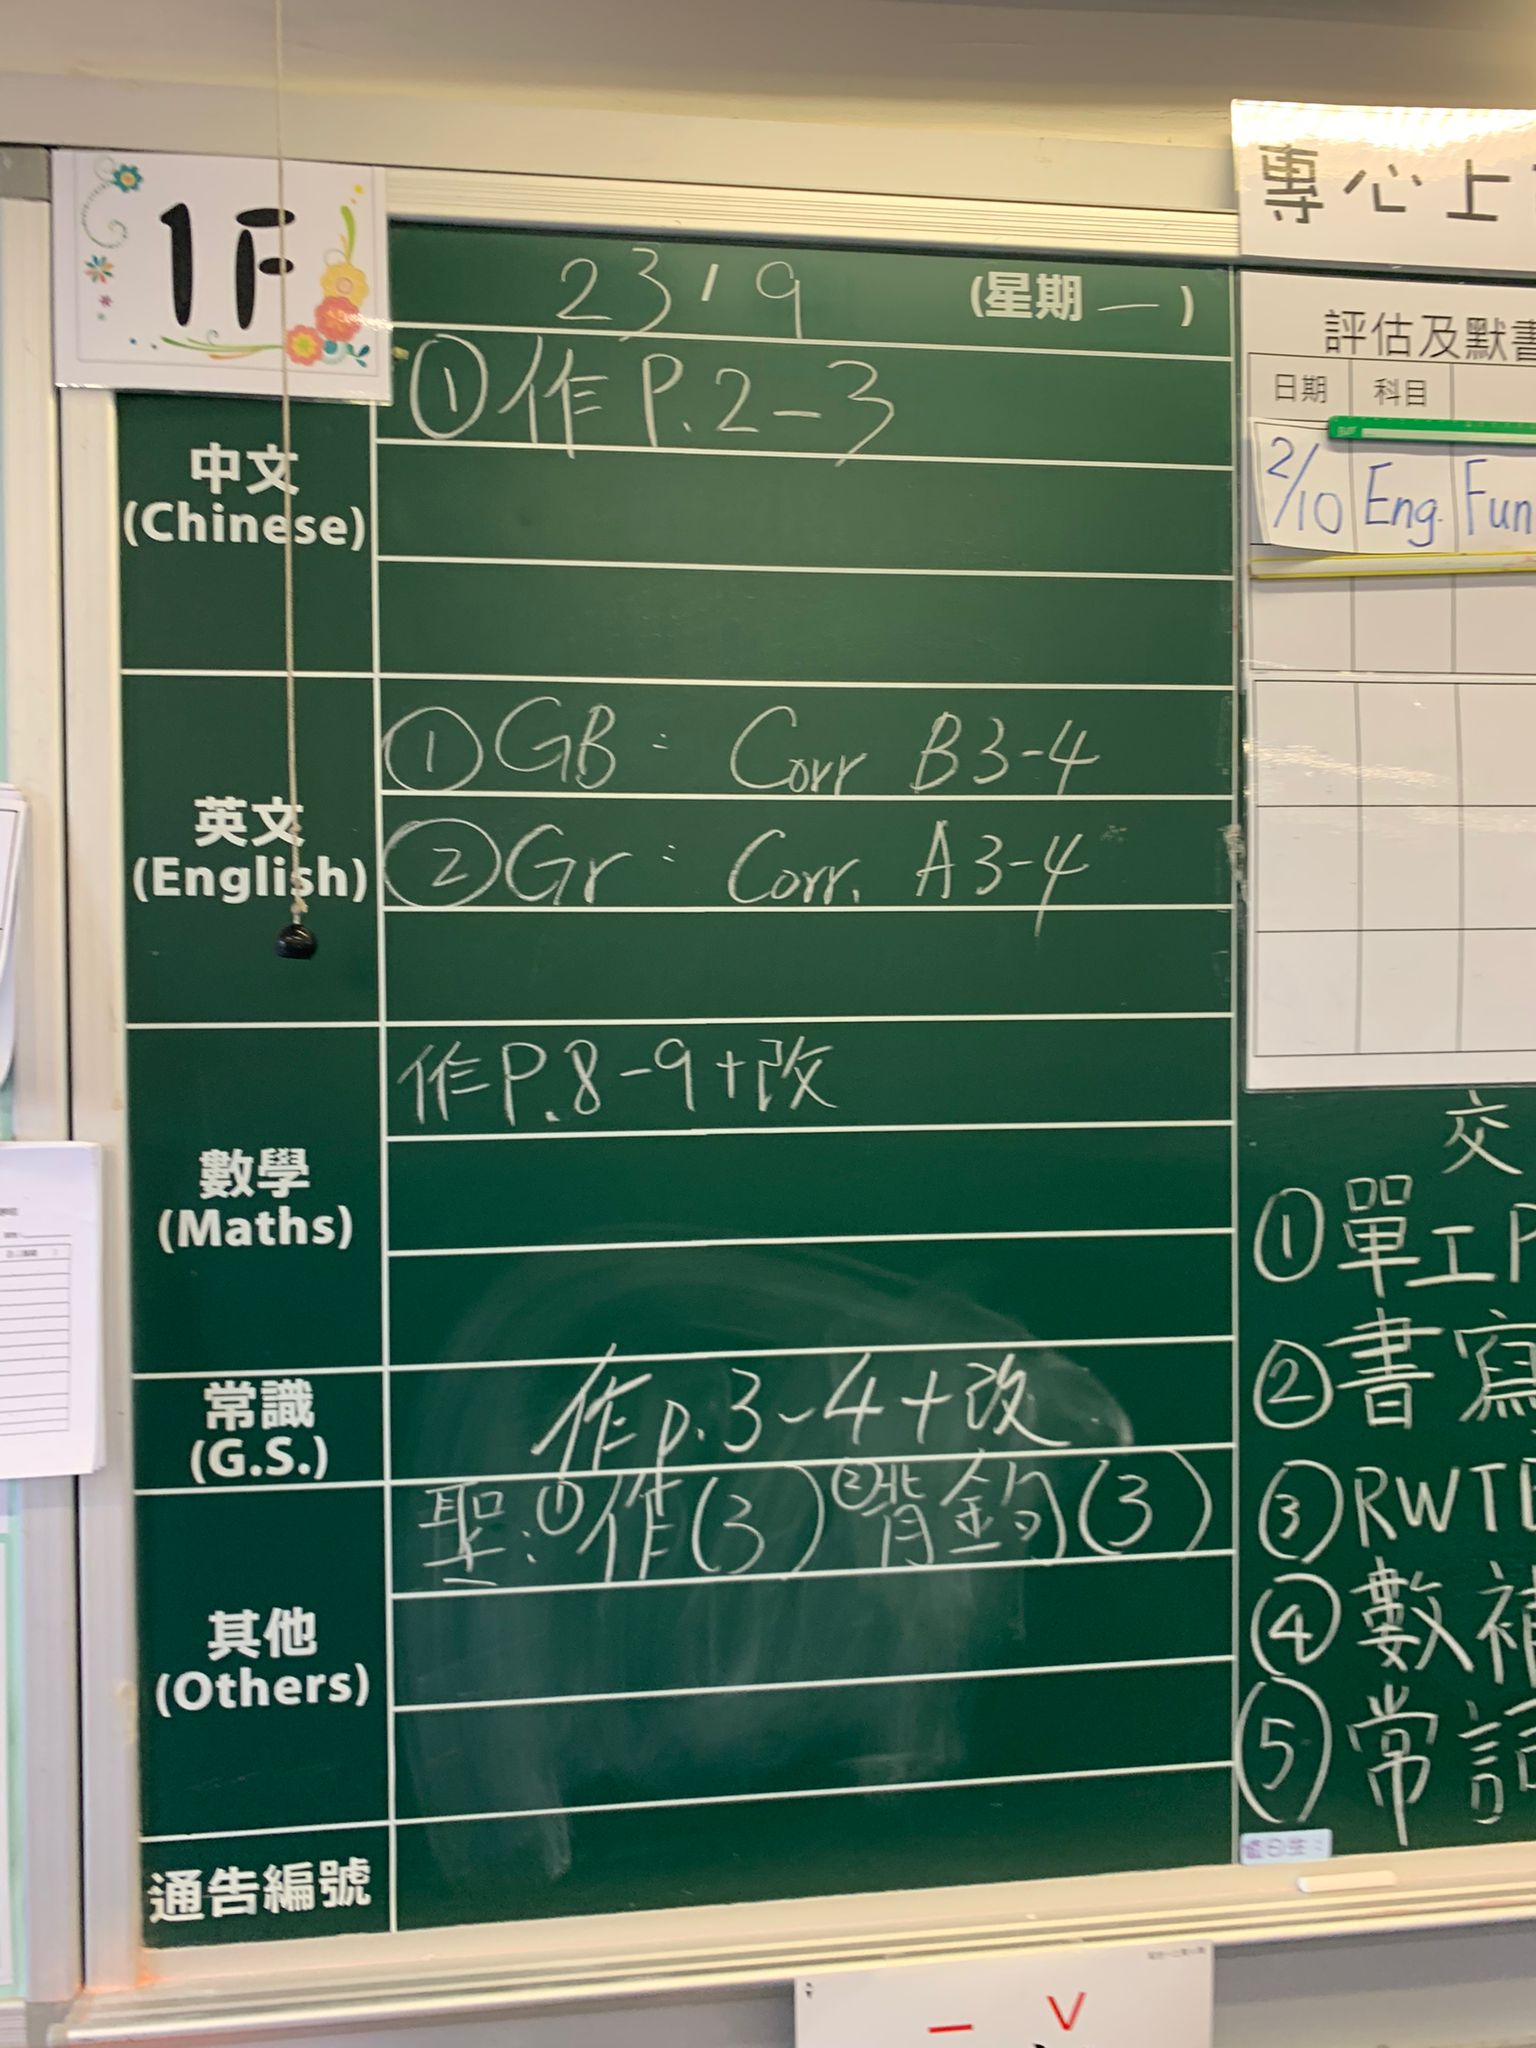 1F
23/9 (星期一)
中文
(Chinese)
①作P.2-3
英文
(English)
①GB: Corr B3-4
②Gr: Corr. A3-4
數學
(Maths)
作P.8-9+改
常識
(G.S.)
作p.3-4+改
其他
(Others)
聖:①作(3)②背金句(3)
通告編號
專心上
評估及默書
日期 科目
2/10 Eng. Fun
交
①單工P
②書寫
③RWTB
④數補
⑤常